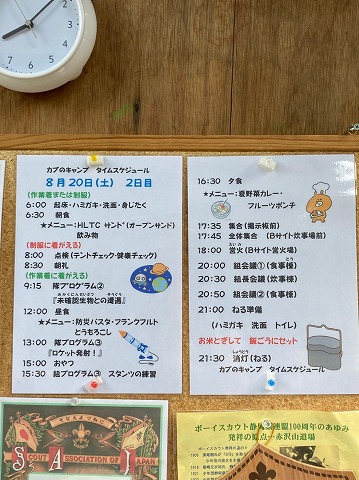 カブのキャンプ タイムスケジュール
8月20日(土) 2日目
(作業着または制服)
6:00 起床・ハミガキ・洗面・身じたく
6:30 朝食
★メニュー:HLTC サンド(オープンサンド)
飲み物
(制服に着がえる)
8:00 点検(テントチェック・健康チェック)
8:30 朝礼
(作業着に着がえる)
9:15 隊プログラム②
『未確認生物との遭遇』
12:00 昼食
★メニュー:防災パスタ・フランクフルト
とうもろこし
13:00 隊プログラム③
『ロケット発射!』
15:00 おやつ
15:30 組プログラム③ スタンツの練習
16:30 夕食
★メニュー:夏野菜カレー・
フルーツポンチ
17:35 集合(掲示板前)
17:45 全体集合 (Bサイト炊事場前)
18:00 営火(Bサイト営火場)
20:00 組会議①(食事棟)
20:30 組長会議(炊事棟)
20:50 組会議②(食事棟)
21:00 ねる準備
(ハミガキ 洗面 トイレ)
お米とぎして 飯ごうにセット
21:30 消灯(ねる)
カブのキャンプ タイムスケジュール
そなえよつねに
SAJ
SCOUT ASSOCIATION OF JAPAN
ボーイスカウト静岡県連盟100周年のあゆみ
発祥の原点─赤沢山道場